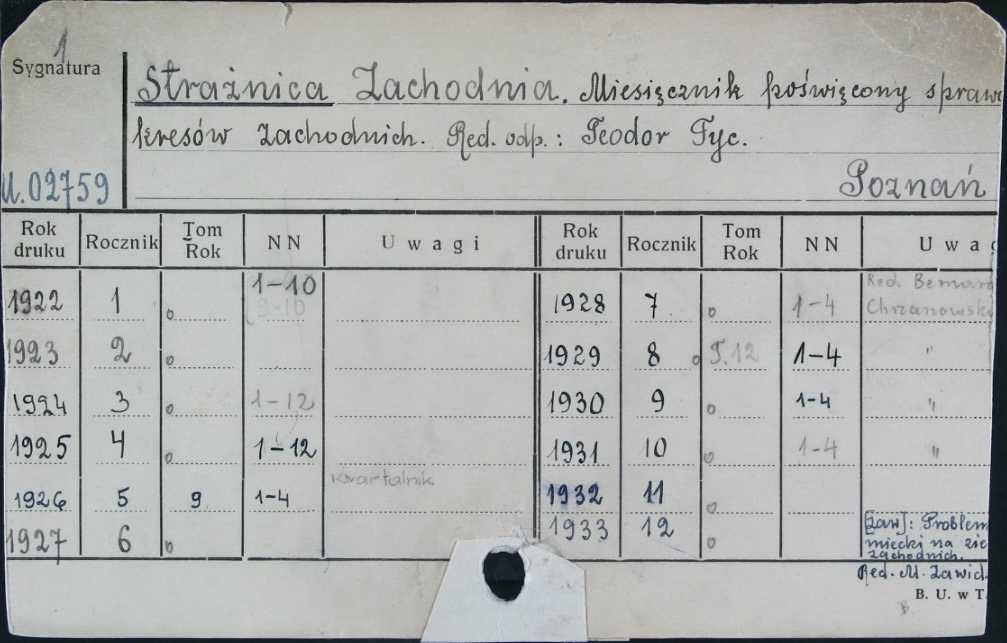 1
Sygnatura
Strażnica Zachodnia. Miesięcznik poświęcony spraw
kresów zachodnich. Red. odp.: Teodor Tyc.
U.02759
Poznań
Rok druku Rocznik Tom Rok NN Uwagi Rok druku Rocznik Tom Rok NN Uwag
1922 1 o 1-10 9-10 1928 7 o 1-4 Red. Bernard Chrzanowski
1923 2 o 1929 8 o T.12 1-4 "
1924 3 o 1-12 1930 9 o 1-4 "
1925 4 o 1-12 1931 10 o 1-4 "
1926 5 9 1-4 kwartalnik 1932 11 o
1927 6 o 1933 12 o [zaw]: Problem
miecki na zie
zachodnich.
Red. M. Zawid
B. U. w T.
B.